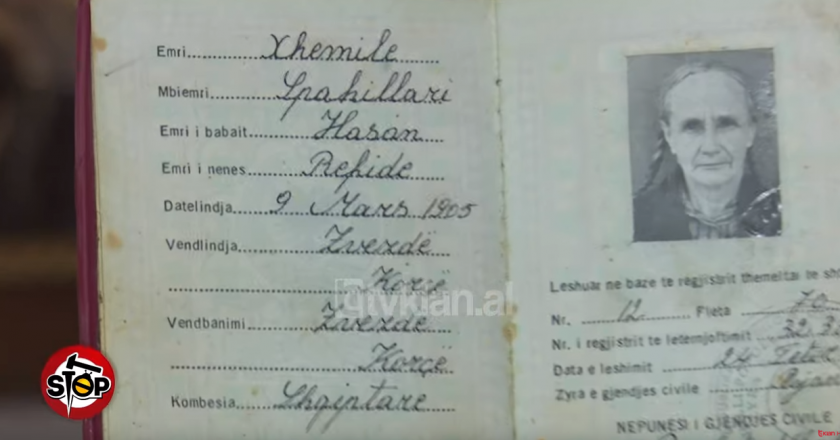 Emri Xhemile
Mbiemri Spahillari
Emri i babait Hasan
Emri i nenes Refide
Datelindja 9 Mars 1905
Vendlindja Zvezdë
Korçë
Vendbanimi Zvezdë
Korçe
Kombesia Shqiptare
Leshuar ne baze te regjistrit themeltar te
Nr. 12 Fleta 70
Nr. i regjistrit te leternjoftimit
Data e leshimit 24 Tetor
Zyra e gjendjes civile
NEPUNESI I GJENDJES CIVILE
STOP